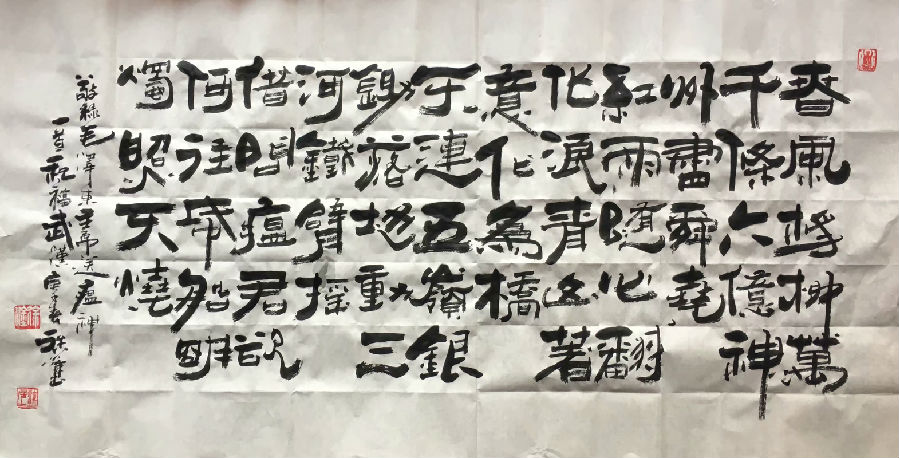 春風楊柳萬
千條六億神
州盡舜堯
紅雨隨心翻
化浪青山著
意化為橋
天連五嶺銀
鋤落地動三
河鐵臂搖
借問瘟君欲
何往紙船明
燭照天燒
敬録毛澤東主席送瘟神
一首祝福武漢庚子春